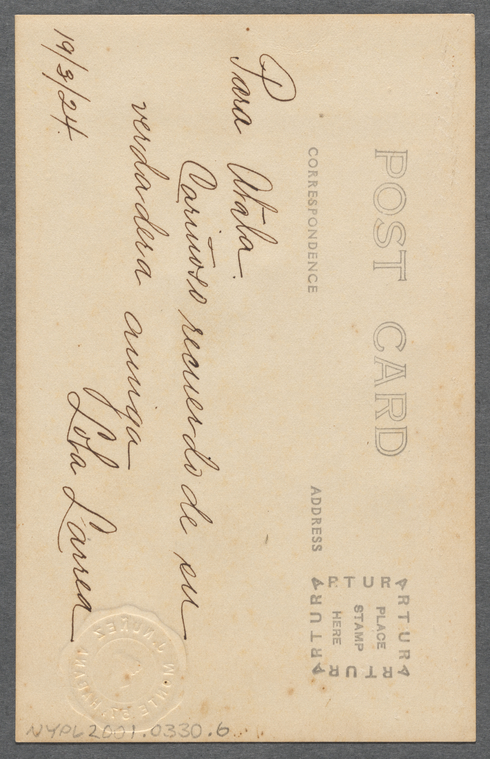 POST CARD
CORRESPONDENCE
ADDRESS
ARTURA
PLACE
STAMP
HERE
ARTURA
ARTURA
ARTURA
Para Atala.
Cariñoso recuerdo de su
verdadera amiga
Lola Larrea
19/3/24.
NYPL2001.0330.6